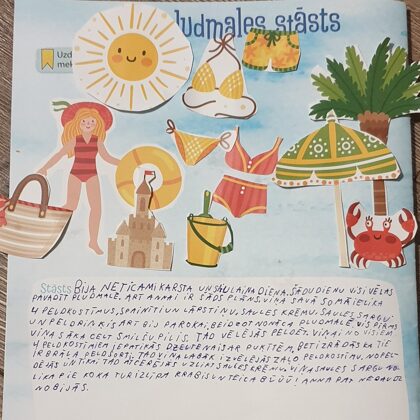 ludmales stāsts
Uzd
mek
Stāsts BIJA NETICAMI KARSTA UN SAULAINA DIENA. ŠĀDU DIENU VISI VĒLAS
PAVADĪT PLUDMALĒ. ARĪ ANNAI IR ŠĀDS PLĀNS. VIŅA SAVĀ SOMĀ IELIKA
4 PELDKOSTĪMUS, SPAINĪTI UN LĀPSTIŅU, SAULES KRĒMU. SAULES SARGU
UN PELDRIŅĶIS ARĪ BIJA PA ROKAI. BEIDZOT NONĀCA PLUDMALĒ, VISPIRMS
VIŅA SĀKA CELT SMILŠU PILIS. TAD VĒLĒJĀS PELDĒT. VIŅAI NO VISIEM
4 PELDKOSTĪMIEM IEPATIKĀS DZELTENAIS AR PUĶĪTĒM, BET IZRĀDĀS KA TIE
IR BRĀĻA PELDŠORTI. TAD VIŅA LABĀK IZVĒLĒJĀS ZAĻO PELDKOSTĪMU. NOPEL-
DĒJĀS UN TIKAI TAD ATCERĒJĀS UZLIKT SAULES KRĒMU. VIŅA SAULES SARGU NO-
LIKA PIE KOKA TUR IZLĪDA KRABIS UN TEICA BŪŪŪ! ANNA PAT NEDAUDZ
NOBIJĀS.